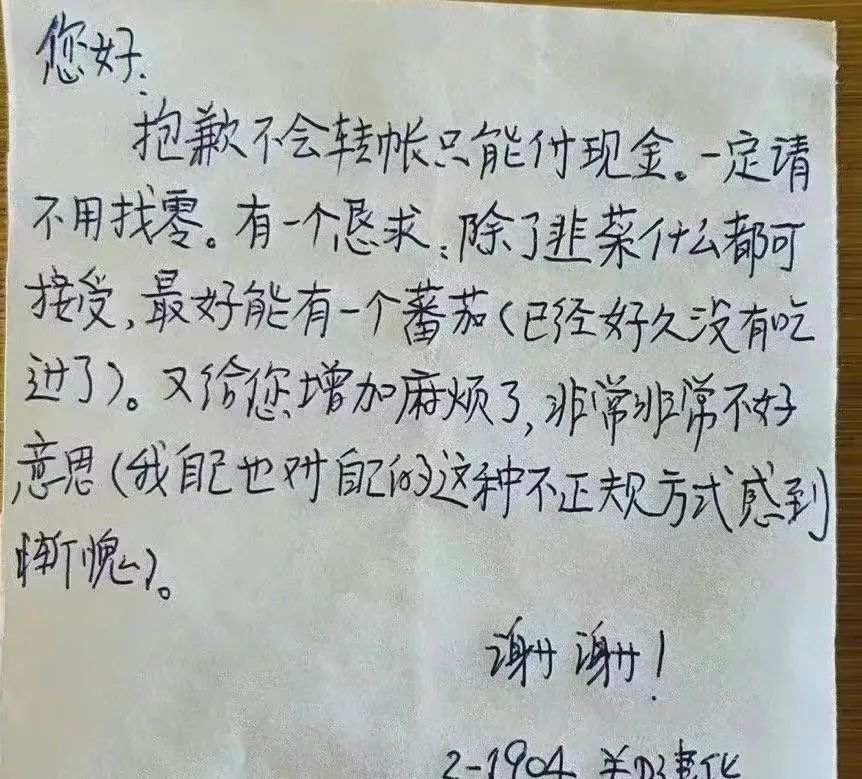 您好:
抱歉不会转帐只能付现金。一定请
不用找零。有一个恳求:除了韭菜什么都可
接受,最好能有一个蕃茄(已经好久没有吃
过了)。又给您增加麻烦了,非常非常不好
意思(我自己也对自己的这种不正规方式感到
惭愧)。
谢谢!
2-1904